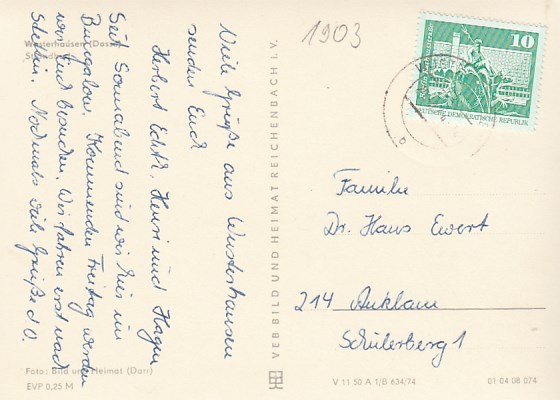 Wusterhausen (Dosse)
Viele Grüße aus Wusterhausen
senden Euch
Herbert Edith, Henri und Hagen
Seit Sonnabend sind wir hier im
Bungalow. Kommenden Freitag werden
wir Fred besuchen. Wir fahren erst nach
Nochmals viele Grüße d.O.
Foto: Bild und Heimat (Darr)
EVP 0,25 M
VEB BILD UND HEIMAT REICHENBACH I. V.
1903
10
DEUTSCHE DEMOKRATISCHE REPUBLIK
Familie
Dr. Hans Ewert
214 Anklam
Schülerberg 1
V 11 50 A 1/B 654/74
01 04 08 074